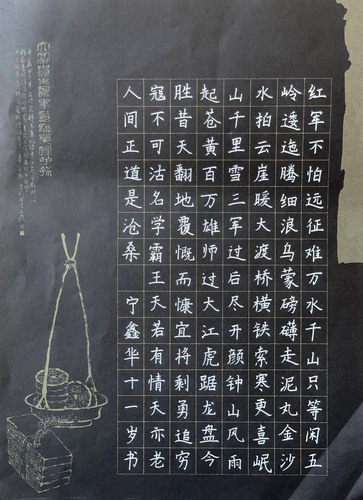 红军不怕远征难万水千山只等闲五
岭逶迤腾细浪乌蒙磅礴走泥丸金沙
水拍云崖暖大渡桥横铁索寒更喜岷
山千里雪三军过后尽开颜钟山风雨
起苍黄百万雄师过大江虎踞龙盘今
胜昔天翻地覆慨而慷宜将剩勇追穷
寇不可沽名学霸王天若有情天亦老
人间正道是沧桑 宁鑫华十一岁书